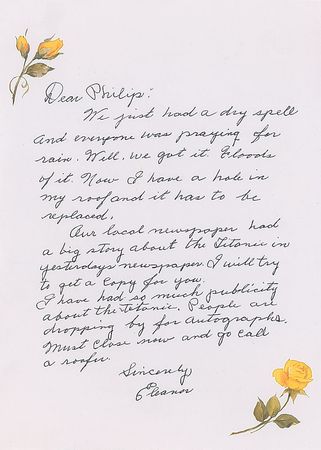 Dear Philip:
We just had a dry spell
and everyone was praying for
rain. Well, we got it. Floods
of it. Now I have a hole in
my roof and it has to be
replaced.
Our local newspaper had
a big story about the Titanic in
yesterdays newspaper. I will try
to get a Copy for you.
I have had so much publicity
about the Titanic. People are
dropping by for autographs.
Must Close now and go Call
a roofer.
Sincerely
Eleanor